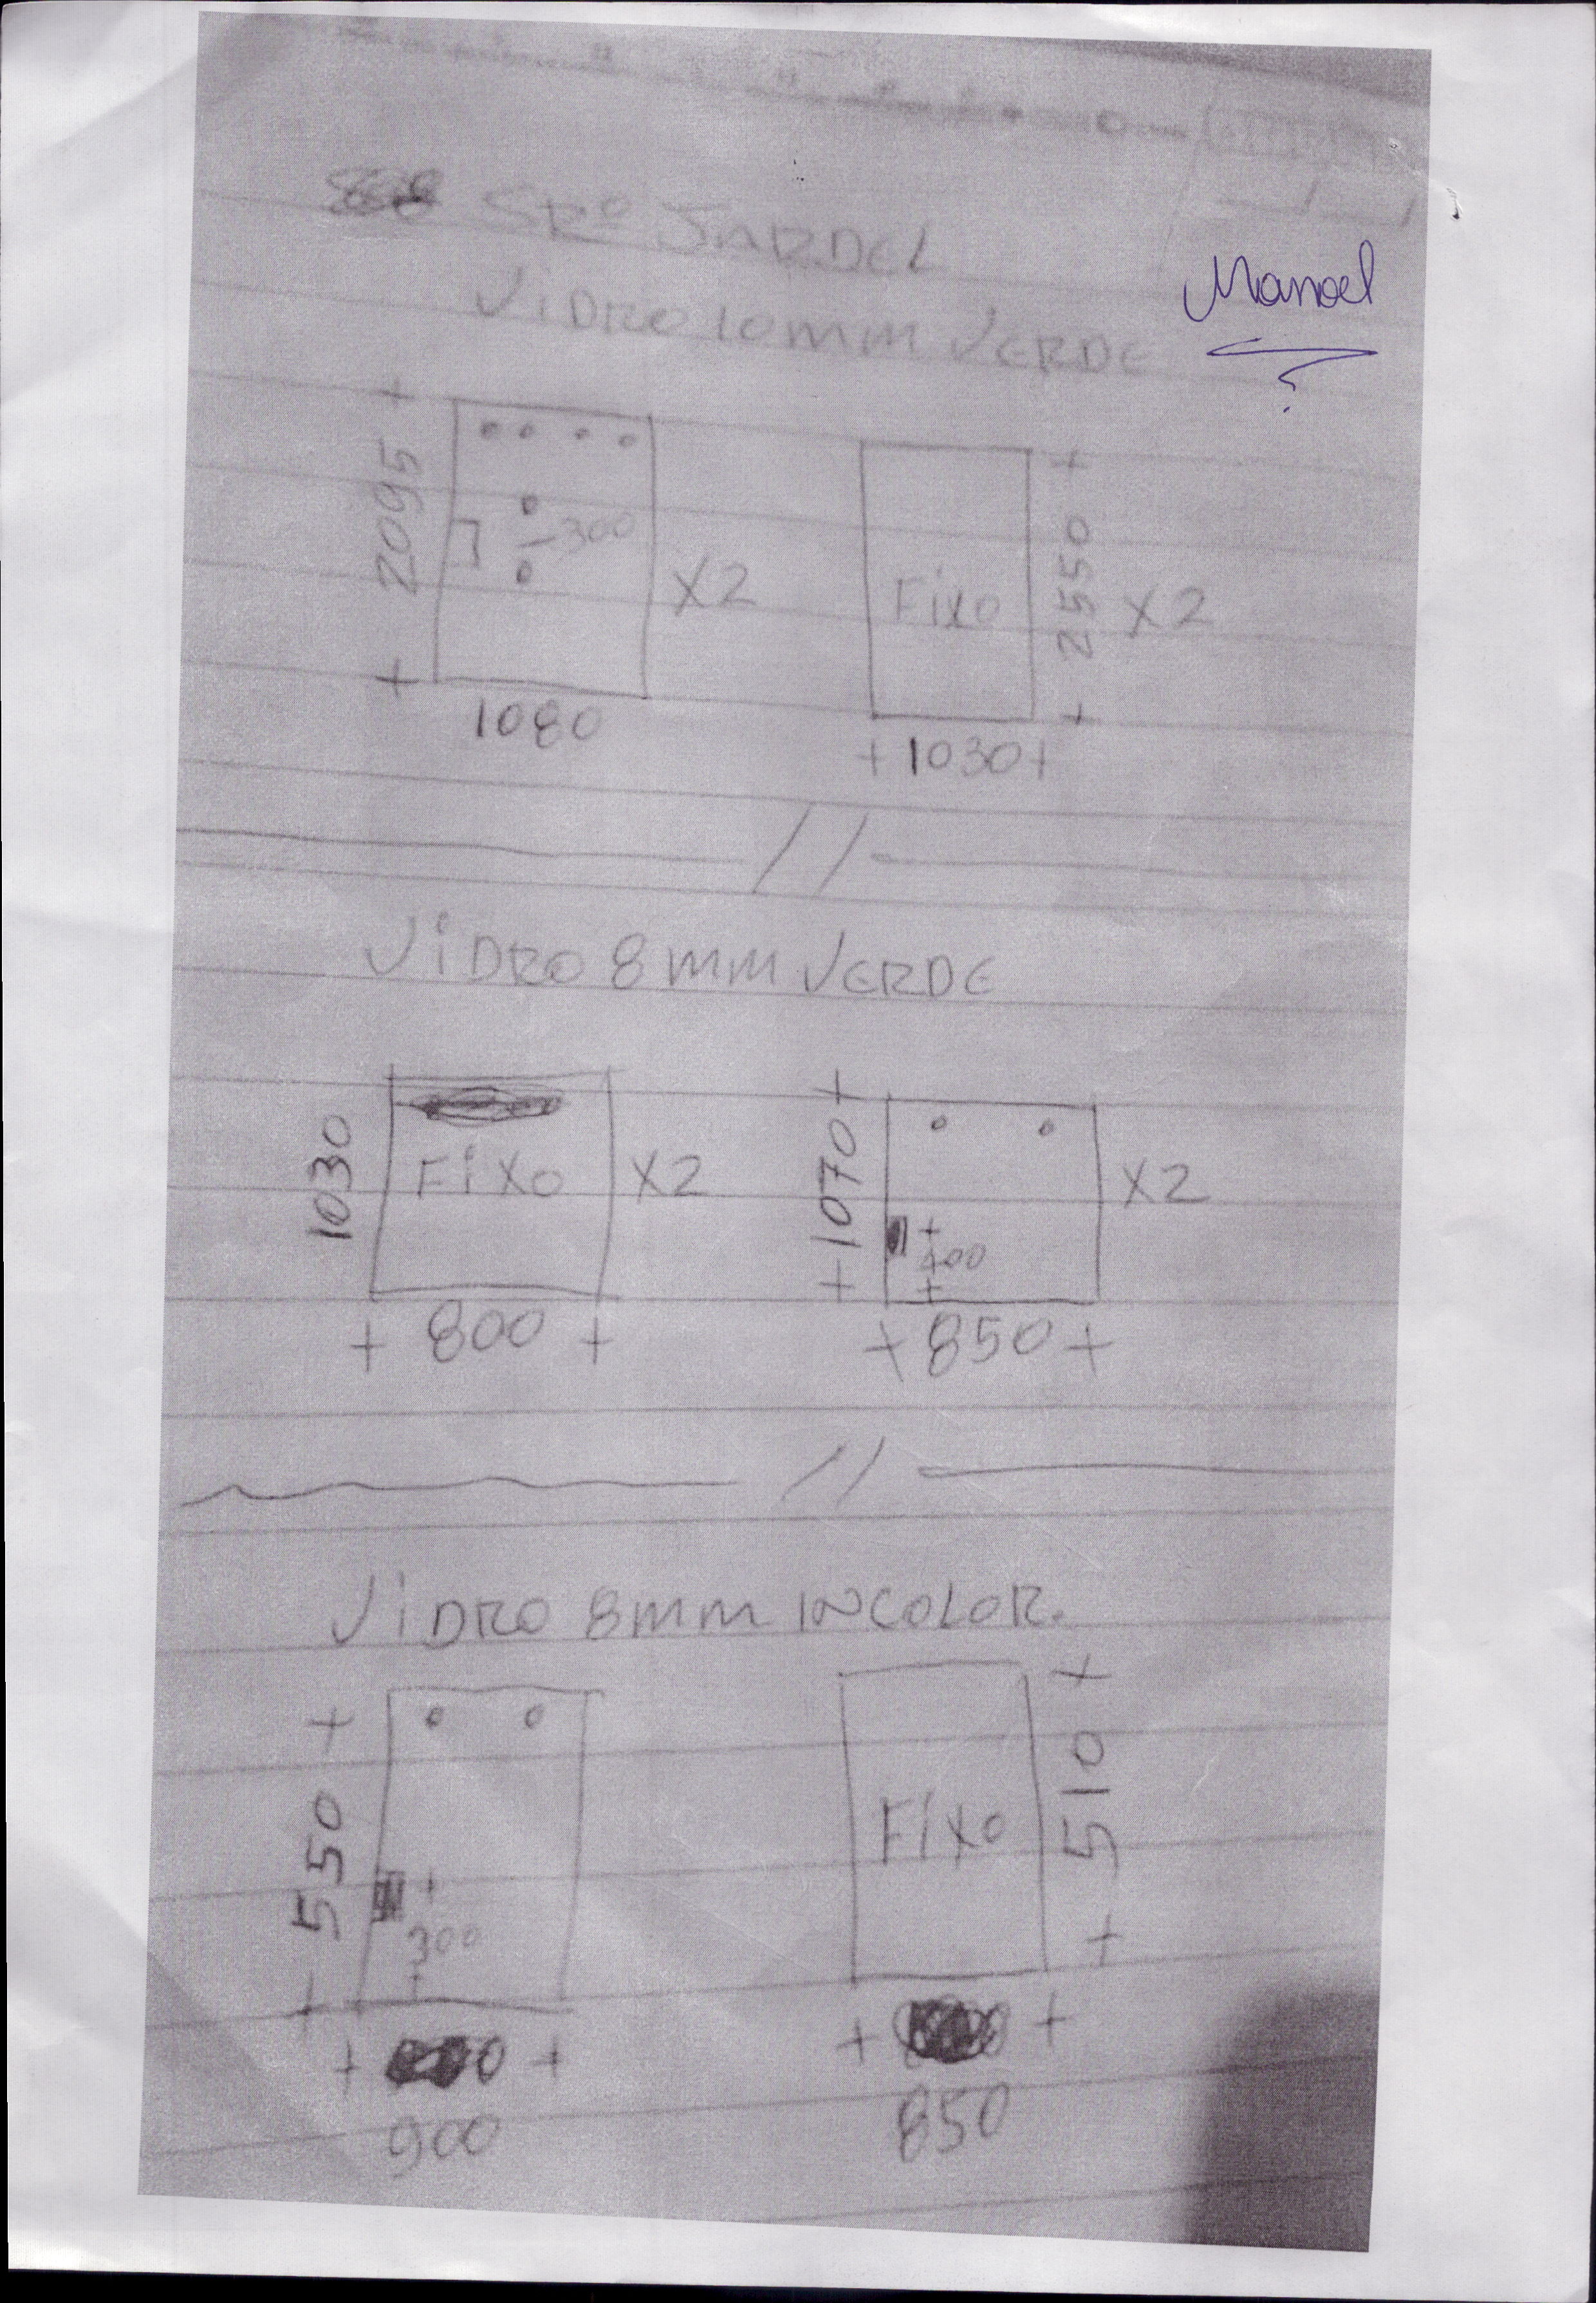 SRº JARDEL
Manoel
VIDRO 10MM VERDE
2095
300
X2
1080
Fixo
2550
X2
1030
VIDRO 8MM VERDE
1030
Fixo
X2
800
1070
400
X2
850
VIDRO 8MM INCOLOR.
550
300
900
Fixo
510
850